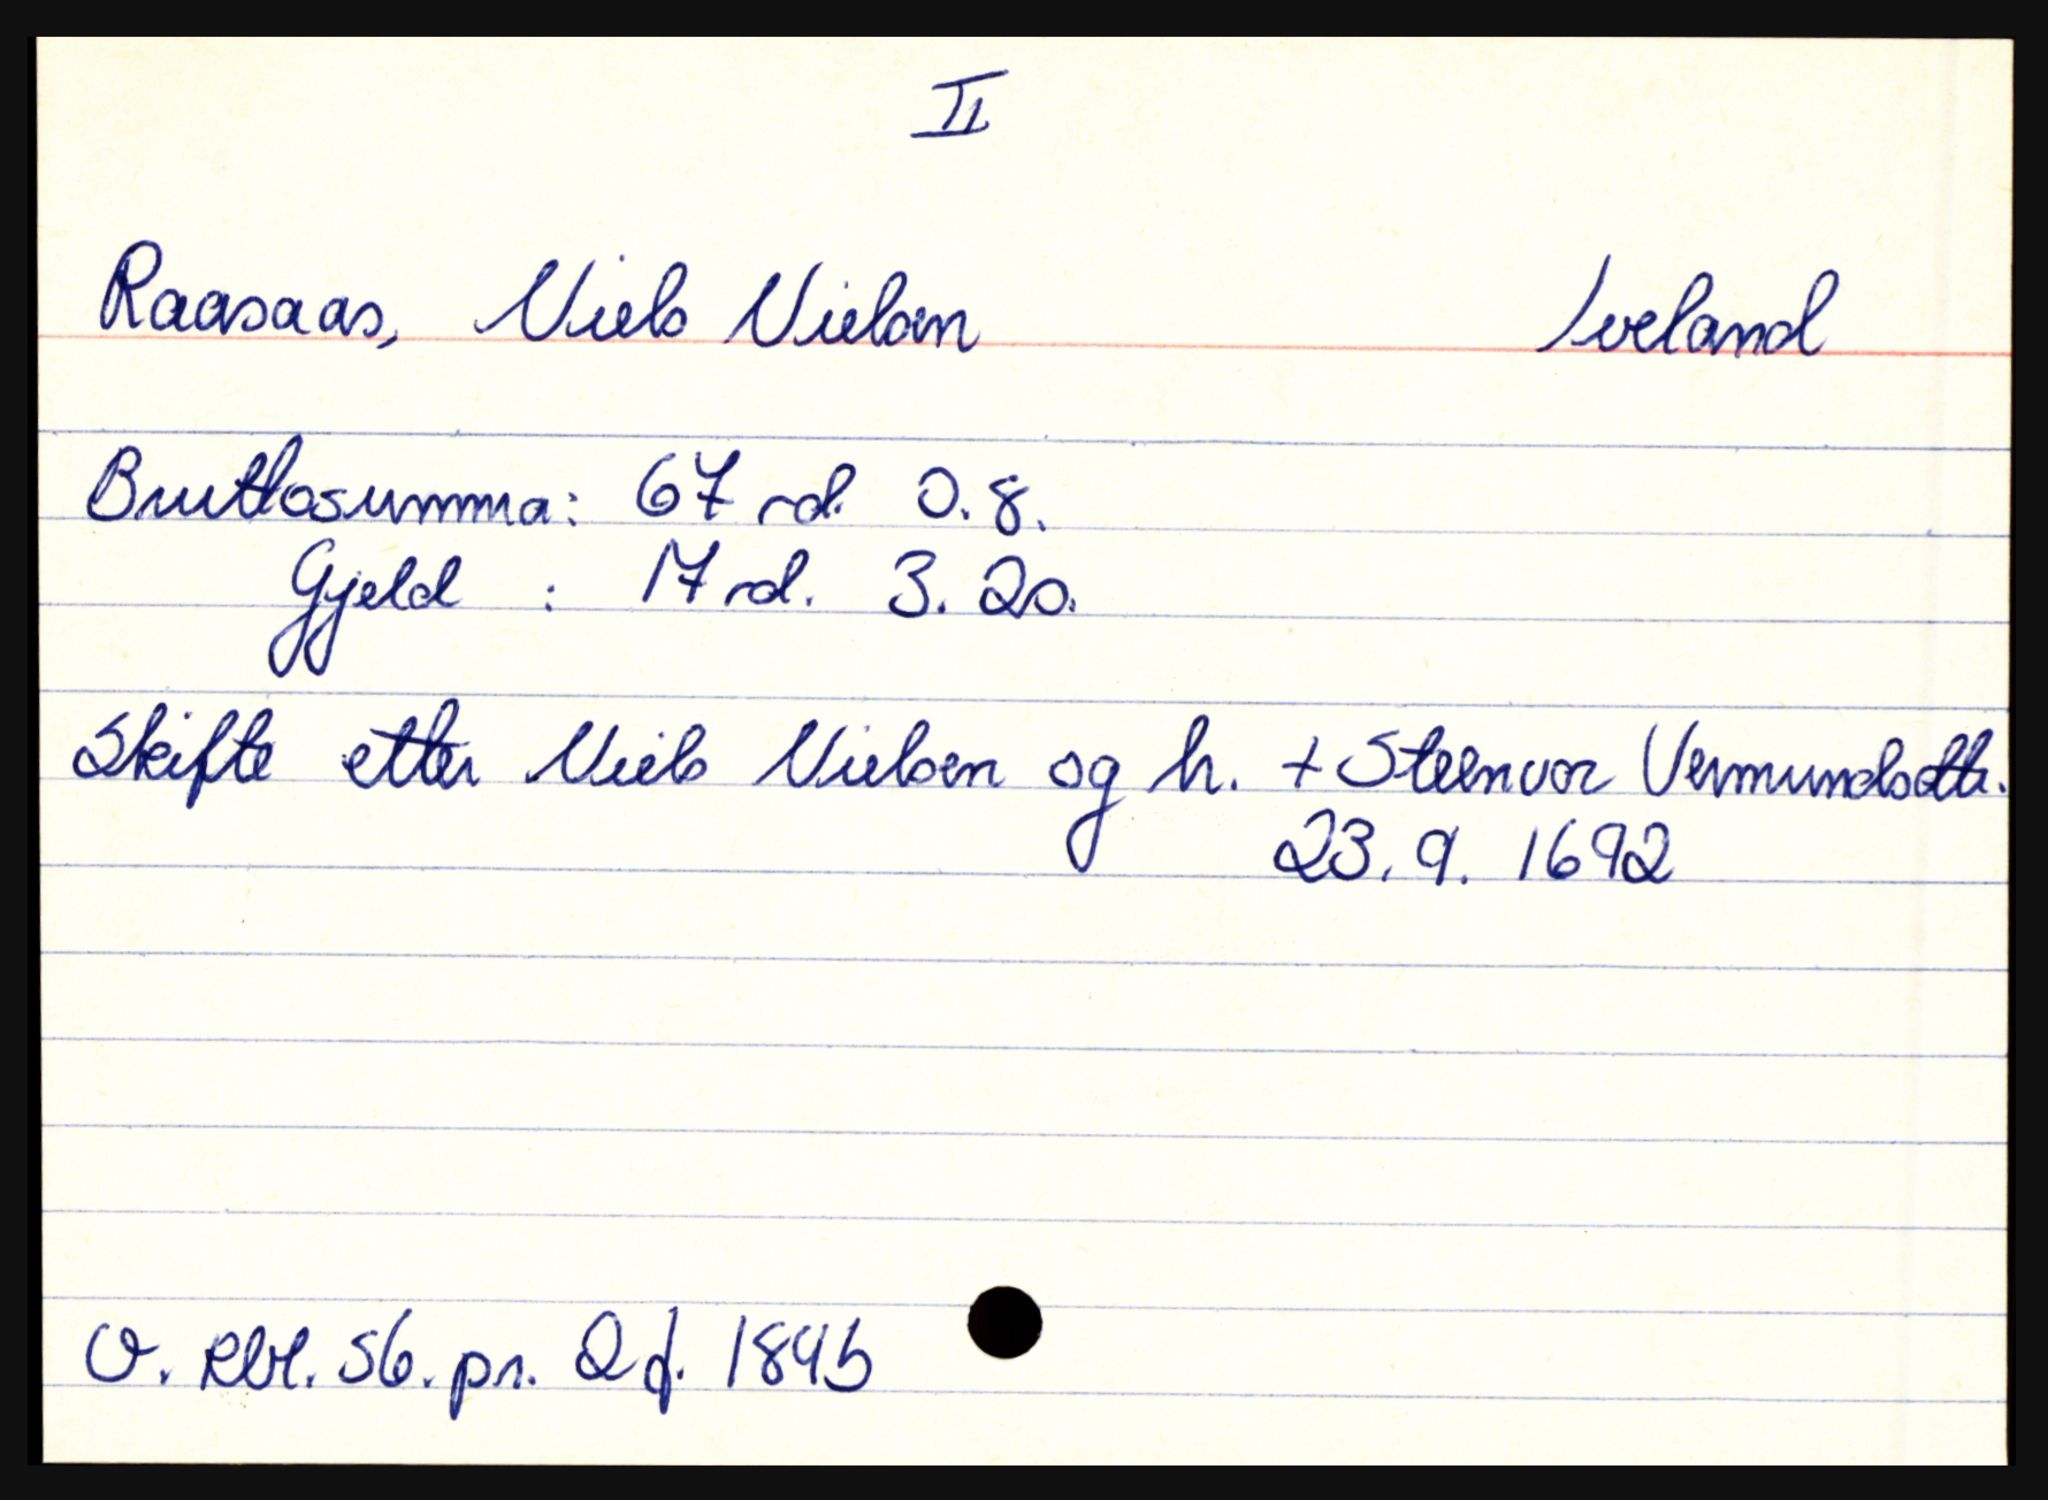 II
Raasaas, Niels Nielsen Iveland
Bruttosumma: 67 rd. 0. 8.
Gjeld : 17 rd. 3. 20.
Skifte etter Niels Nielsen og h. + Steenvor Vermundsdtr.
23. 9. 1692
O. Rbl. sb. pr. 2 f. 184b